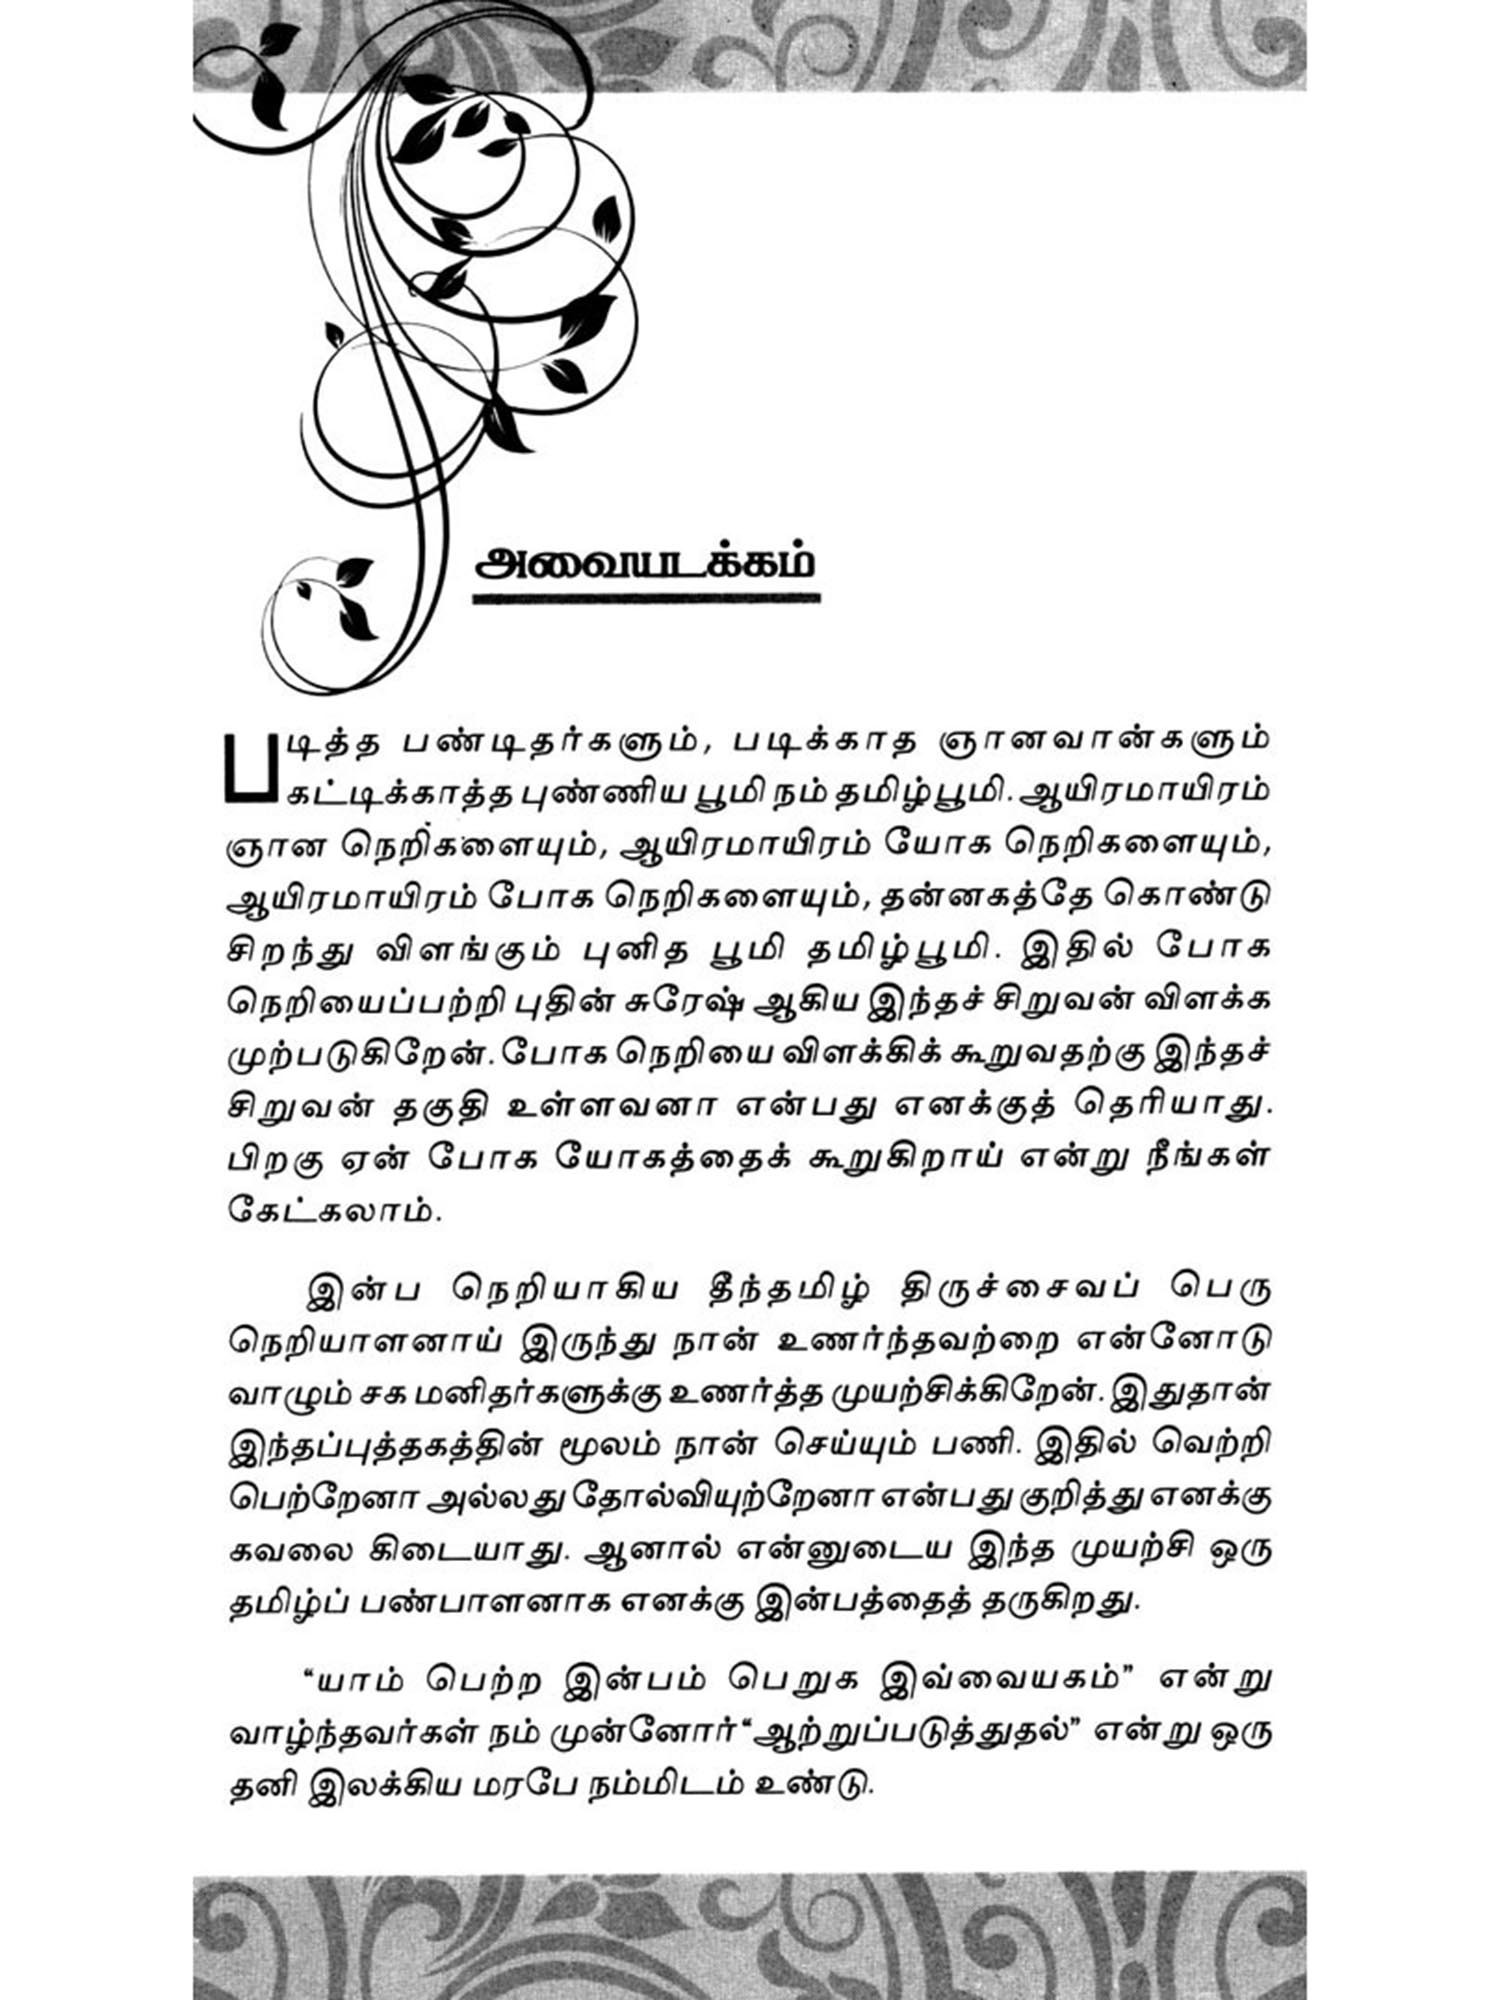 அவையடக்கம்
படித்த பண்டிதர்களும், படிக்காத ஞானவான்களும்
கட்டிக்காத்த புண்ணிய பூமி நம் தமிழ்பூமி. ஆயிரமாயிரம்
ஞான நெறிகளையும், ஆயிரமாயிரம் யோக நெறிகளையும்,
ஆயிரமாயிரம் போக நெறிகளையும், தன்னகத்தே கொண்டு
சிறந்து விளங்கும் புனித பூமி தமிழ்பூமி. இதில் போக
நெறியைப்பற்றி புதின் சுரேஷ் ஆகிய இந்தச் சிறுவன் விளக்க
முற்படுகிறேன். போக நெறியை விளக்கிக் கூறுவதற்கு இந்தச்
சிறுவன் தகுதி உள்ளவனா என்பது எனக்குத் தெரியாது.
பிறகு ஏன் போக யோகத்தைக் கூறுகிறாய் என்று நீங்கள்
கேட்கலாம்.
இன்ப நெறியாகிய தீந்தமிழ் திருச்சைவப் பெரு
நெறியாளனாய் இருந்து நான் உணர்ந்தவற்றை என்னோடு
வாழும் சக மனிதர்களுக்கு உணர்த்த முயற்சிக்கிறேன். இதுதான்
இந்தப்புத்தகத்தின் மூலம் நான் செய்யும் பணி. இதில் வெற்றி
பெற்றேனா அல்லது தோல்வியுற்றேனா என்பது குறித்து எனக்கு
கவலை கிடையாது. ஆனால் என்னுடைய இந்த முயற்சி ஒரு
தமிழ்ப் பண்பாளனாக எனக்கு இன்பத்தைத் தருகிறது.
“யாம் பெற்ற இன்பம் பெறுக இவ்வையகம்” என்று
வாழ்ந்தவர்கள் நம் முன்னோர் “ஆற்றுப்படுத்துதல்” என்று ஒரு
தனி இலக்கிய மரபே நம்மிடம் உண்டு.